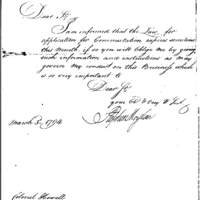 Dear Sir
I am informed that the Law for
application for Commutation expires sometime
this Month, if so you will Oblige Me by giving
such information and instructions as May
govern My conduct on this Business which
is so very important to
Dear Sir
your
March 3, 1794
Colonel Howell